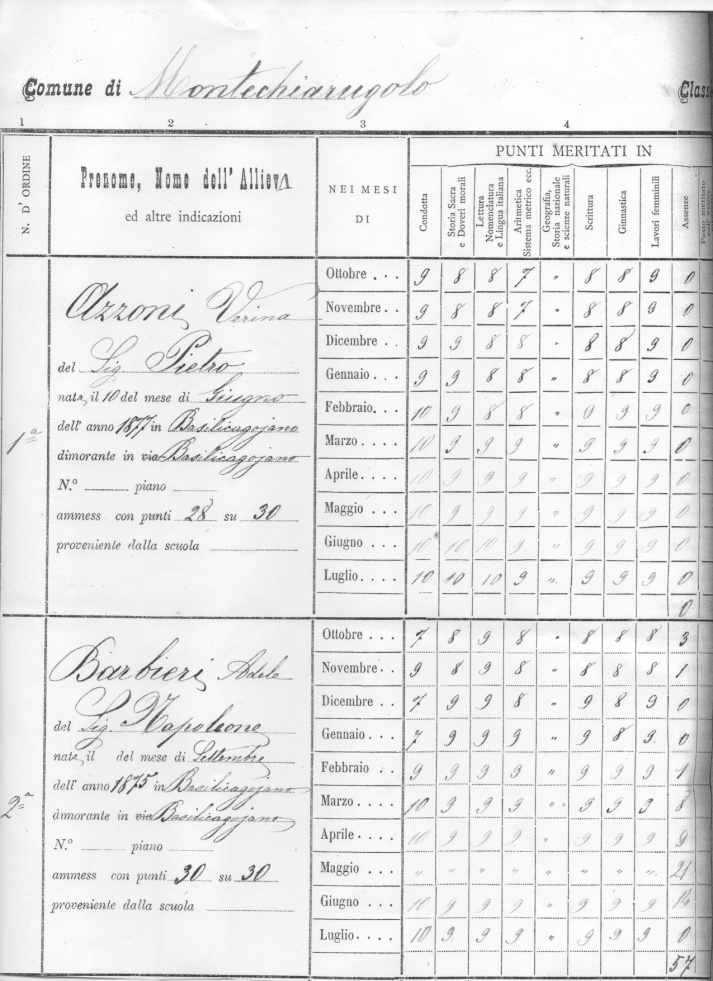 Comune di Montechiarugolo Class
1 2 3 4
N. D'ORDINE
Prenome, Nome dell'Allieva
ed altre indicazioni
NEI MESI
DI
PUNTI MERITATI IN
Condotta
Storia Sacra
e Doveri morali
Lettura
Nomenclatura
e Lingua italiana
Aritmetica
Sistema metrico ecc.
Geografia,
Storia nazionale
e scienze naturali
Scrittura
Ginnastica
Lavori femminili
Assenze
1a
Azzoni Verina
del Sig. Pietro
nata il 10 del mese di Giugno
dell' anno 1877 in Basilicagojano
dimorante in via Basilicagojano
N.° piano
ammess con punti 28 su 30
proveniente dalla scuola
Ottobre . . . 9 8 8 7 " 8 8 9 0
Novembre . . 9 8 8 7 " 8 8 9 0
Dicembre . . 9 9 8 8 " 8 8 9 0
Gennaio . . . 9 9 8 8 " 8 8 9 0
Febbraio. . . 10 9 8 8 " 9 9 9 0
Marzo . . . . 10 9 9 9 " 9 9 9 0
Aprile . . . . 10 9 9 9 " 9 9 9 0
Maggio . . . 10 9 9 9 " 9 9 9 0
Giugno . . . 10 10 10 9 " 9 9 9 0
Luglio . . . . 10 10 10 9 " 9 9 9 0
0
2a
Barbieri Adele
del Sig. Napoleone
nata il del mese di Settembre
dell' anno 1875 in Basilicagojano
dimorante in via Basilicagojano
N.° piano
ammess con punti 30 su 30
proveniente dalla scuola
Ottobre . . . 7 8 9 8 " 8 8 8 3
Novembre . . 9 8 9 8 " 8 8 8 1
Dicembre . . 7 9 9 8 " 9 8 9 0
Gennaio . . . 7 9 9 9 " 9 8 9 0
Febbraio . . 9 9 9 9 " 9 9 9 1
Marzo . . . . 10 9 9 9 " 9 9 9 8
Aprile . . . . 10 9 9 9 " 9 9 9 9
Maggio . . . " " " " " " " " 21
Giugno . . . 10 9 9 9 " 9 9 9 14
Luglio . . . . 10 9 9 9 " 9 9 9 0
57